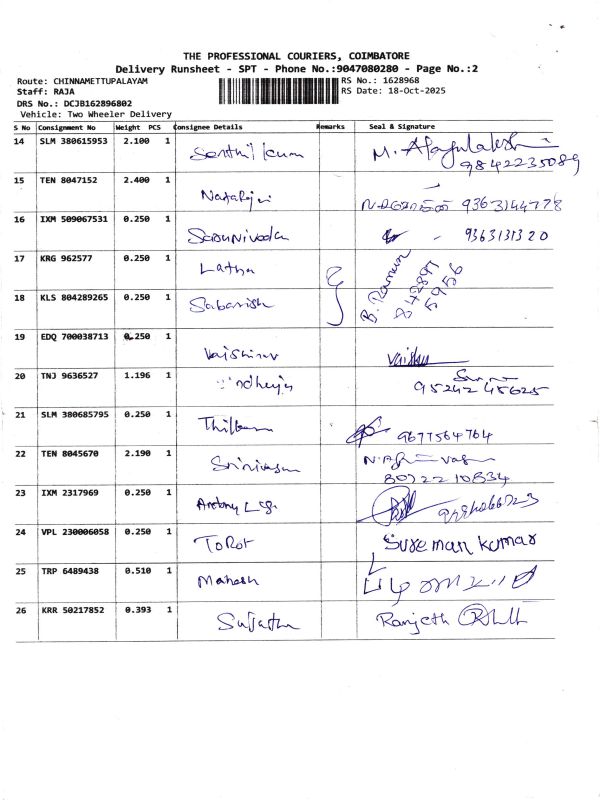 THE PROFESSIONAL COURIERS, COIMBATORE
Delivery Runsheet - SPT - Phone No.:9047080280 - Page No.:2
Route: CHINNAMETTUPALAYAM
Staff: RAJA
DRS No.: DCJB162896802
Vehicle: Two Wheeler Delivery
RS No.: 1628968
RS Date: 18-Oct-2025
S No Consignment No Weight PCS Consignee Details Remarks Seal & Signature
14 SLM 380615953 2.100 1 Senthil kum M.
9842235089
15 TEN 8047152 2.400 1 9363144778
16 IXM 509067531 0.250 1 9363131320
17 KRG 962577 0.250 1 Latha B.
18 KLS 804289265 0.250 1 Sabarish
19 EDQ 700038713 0.250 1 Vaishnav
20 TNJ 9636527 1.196 1
95242 45625
21 SLM 380685795 0.250 1 9677564764
22 TEN 8045670 2.190 1 Srinivasan
8072210834
23 IXM 2317969 0.250 1 Antony
24 VPL 230006058 0.250 1 Sureman kumar
25 TRP 6489438 0.510 1 Mahesh
26 KRR 50217852 0.393 1 Sujatha Ranjeth